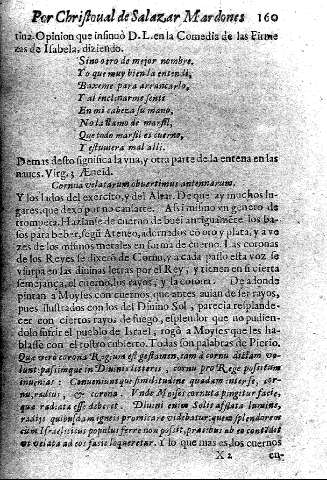 Por Christoual de Salazar Mardones 160
tina. Opinion que insinuò D. L. en la Comedia de las Firme
zas de Isabela, diziendo.
Sino otro de mejor nombre,
Yo que muy bien la entendi,
Baxeme para arrancarlo,
Y al inclinarme senti
En mi cabeça su mano,
No la llamo de marfil,
Que todo marfil es cuerno,
Y estuuiera mal alli.
Demas desto significa la vna, y otra parte de la entena en las
naues. Virg. 3. Æneid.
Cornua velatarum obuertimus antennarum.
Y los lados del exercito, y del Altar. De que ay muchos lu-
gares, que dexo por no cansarte. Assi mismo vn genero de
trompeta. Hazianse de cuerno de buei antiguamẽte los ba-
sos para beber, segũ Ateneo, adornados cõ oro y plata, y a ve
zes de los mismos metales en forma de cuerno. Las coronas
de los Reyes se dixerõ de Cornu, y a cada passo esta voz se
vsurpa en las diuinas letras por el Rey, y tienen en si cierta
semejança, el cuerno, los rayos, y la corona. De a donde
pintan a Moyses con cuernos que antes auian de ser rayos,
pues illustrados con los del Diuino Sol, parecia resplande-
cer con ciertos rayos de fuego, esplendor que no pudien-
dolo sufrir el pueblo de Israel, rogò a Moyses que les ha-
blasse con el rostro cubierto. Todas son palabras de Pierio.
Que vero corona Regium est gestamen, tam à cornu dictam vo-
lunt: passimque in Diuinis litteris, cornu pro Rege positum
inuenias: Conueniunt quippe similitudine quadam inter se, cor-
nu, radius, & corona. Vnde Moises cornuta pingitur facie,
que radiata esse deberet. Diuini enim Solis afflata lumine,
radijs quibusdam igneis promicare videbatur, quem splendorem
cum Israeliticus populus ferre non posset, precibus ab eo contẽdit
vt velata ad eos facie loqueretur. Y lo que mas es, los cuernos
X 2 en-